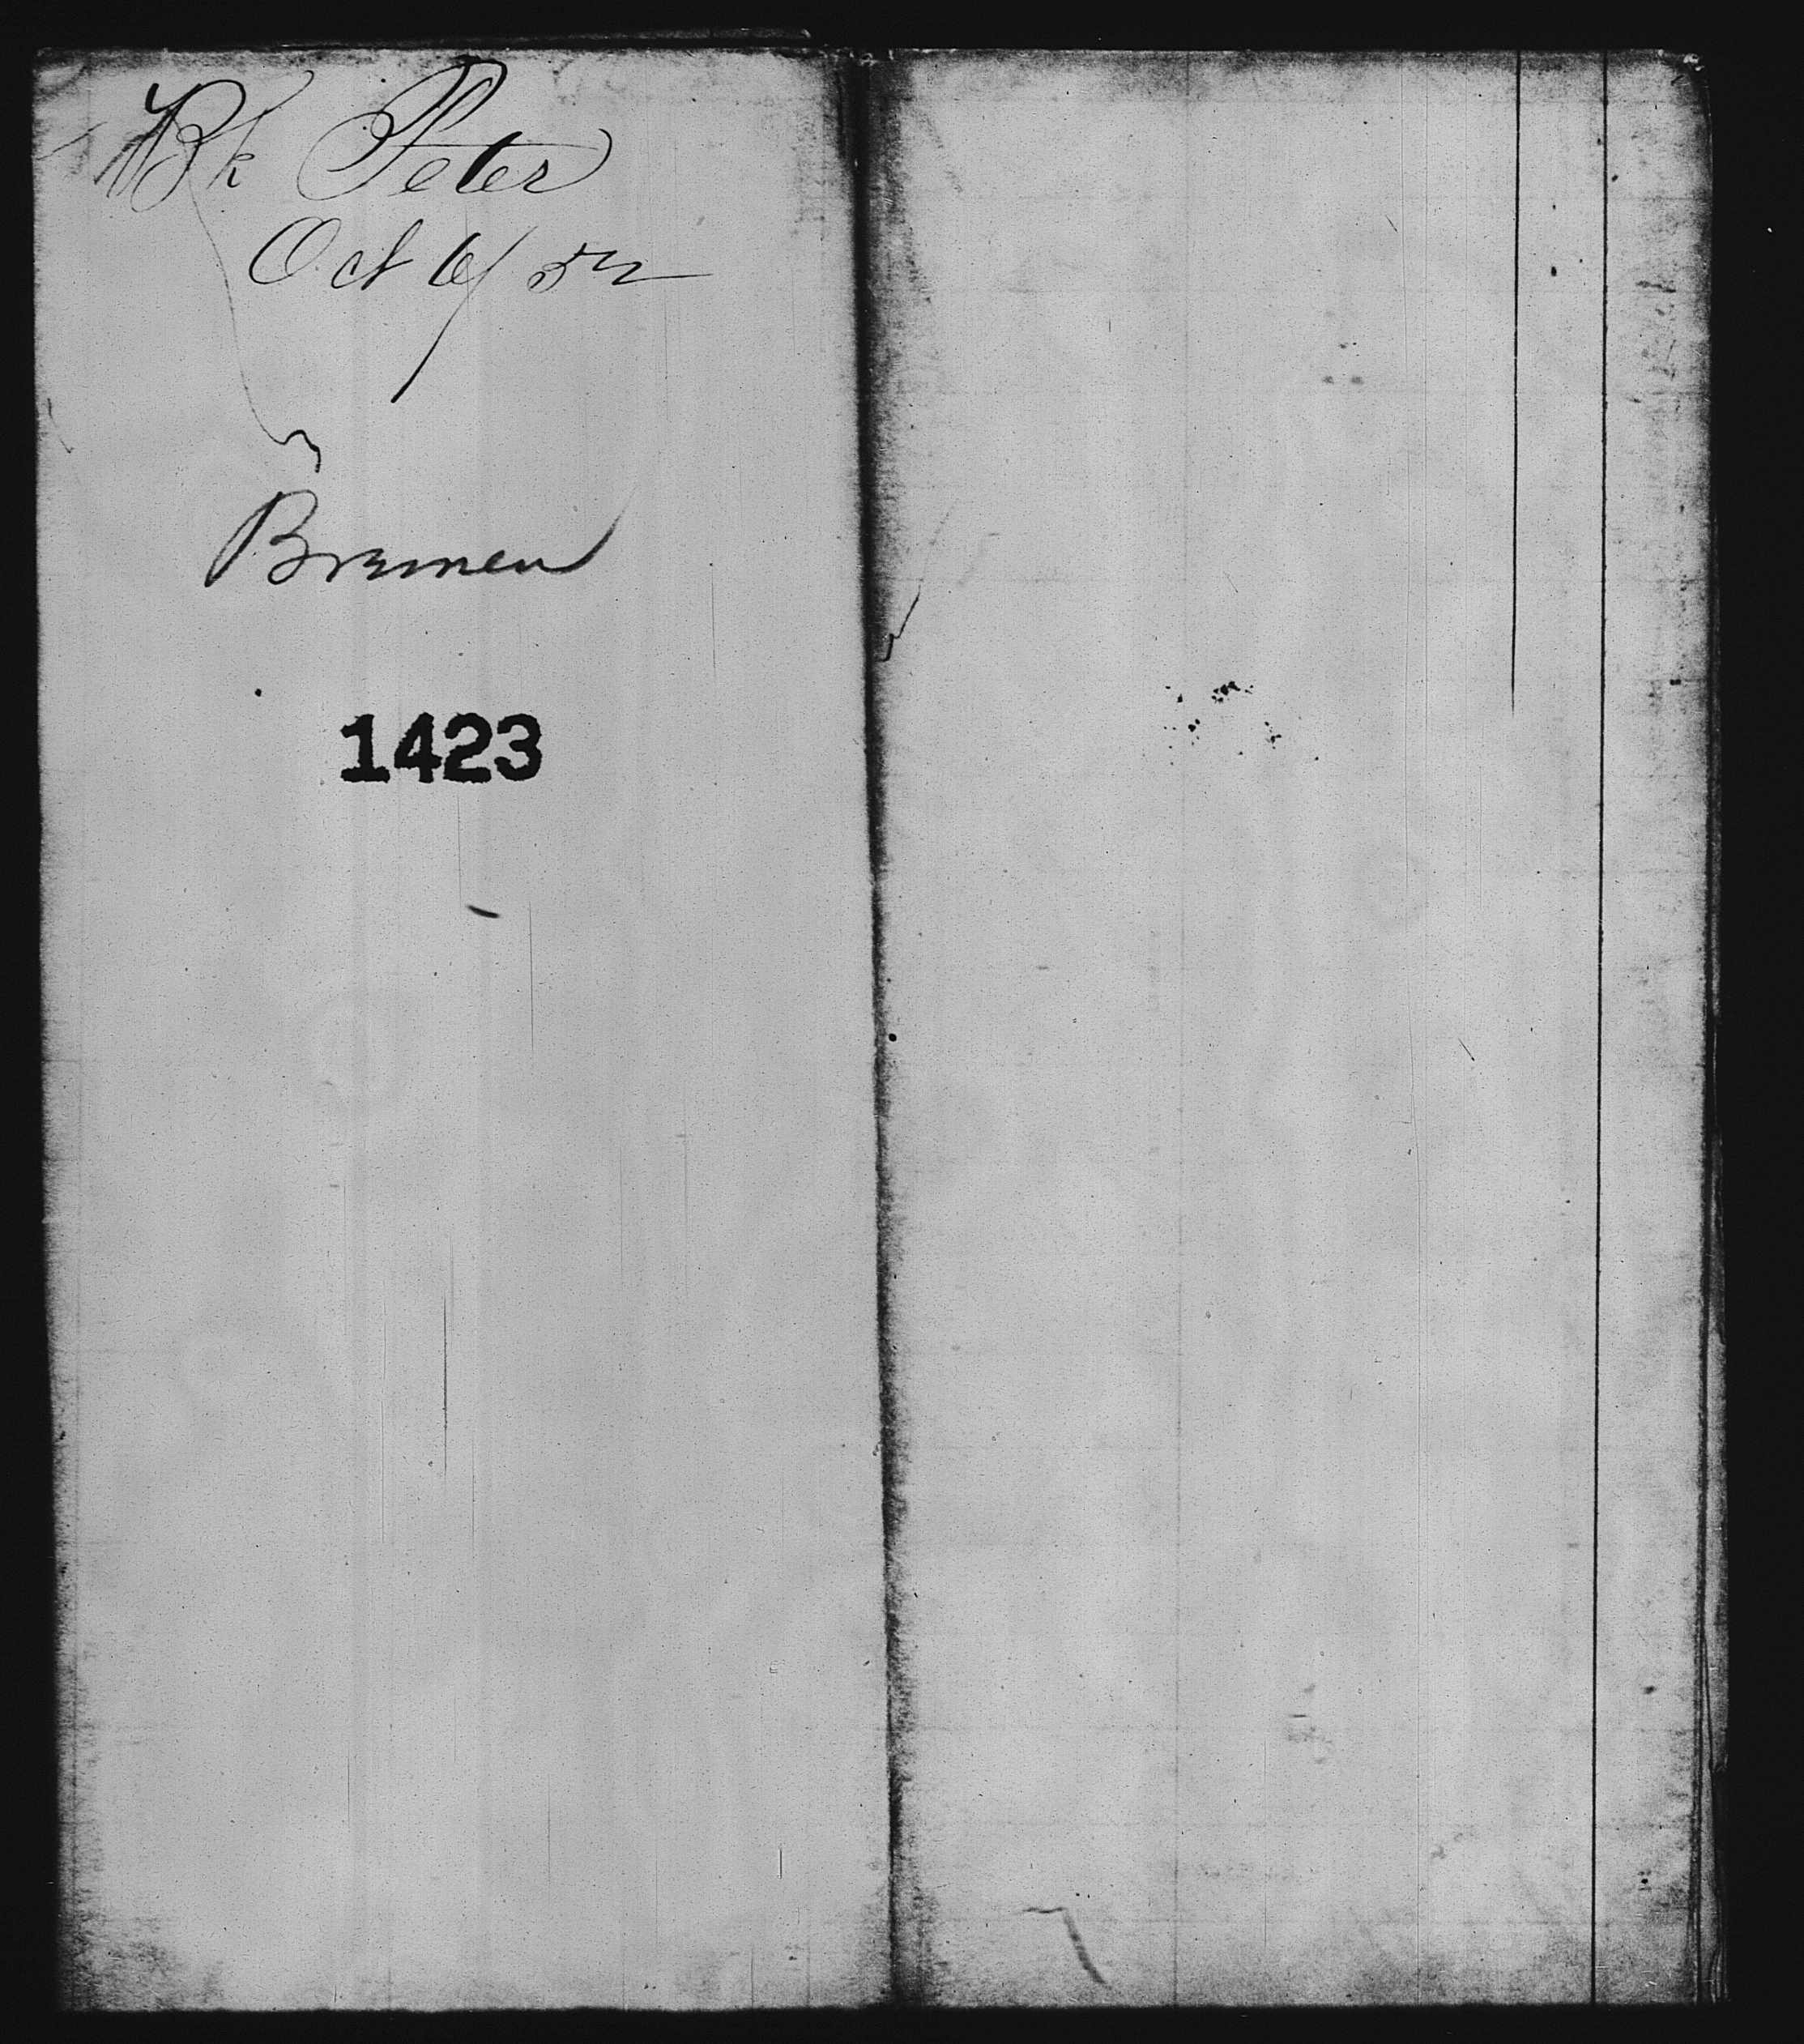 Bk Peter
Oct 6/52
Bremen
1423